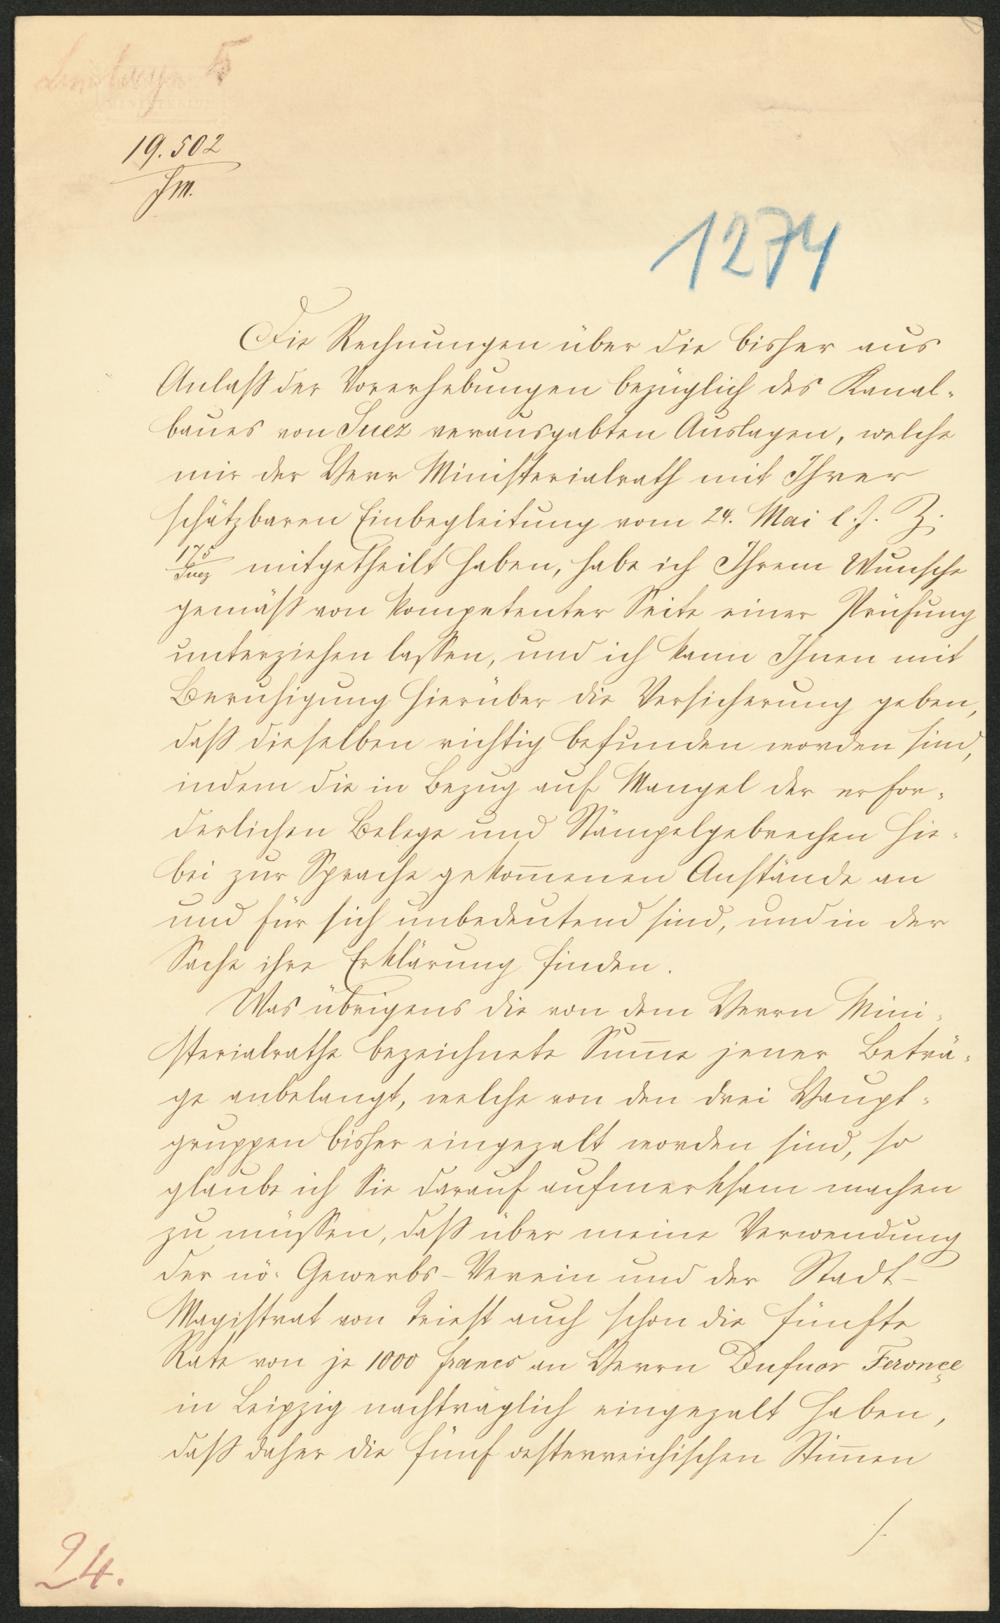 19.502
Hm.
1274
Die Rechnungen über die bisher aus
Anlaß der Vorerhebungen bezüglich des Kanal-
baues von Suez verausgabten Auslagen, welche
mir der Herr Ministerialrath mit Ihrer
schätzbaren Einbegleitung vom 24. Mai l. J. Z.
175/Suez mitgetheilt haben, habe ich Ihrem Wunsche
gemäß von kompetenter Seite einer Prüfung
unterziehen lassen, und ich kann Ihnen mit
Beruhigung hierüber die Versicherung geben,
daß dieselben richtig befunden worden sind,
indem die in Bezug auf Mangel der erfor-
derlichen Belege und Stämpelgebrechen hie-
bei zur Sprache gekom̅enen Anstände an
und für sich unbedeutend sind, und in der
Sache ihre Erklärung finden.
Was übrigens die von dem Herrn Mini-
sterialrathe bezeichnete Sum̅e jener Beträ-
ge anbelangt, welche von den drei Haupt-
gruppen bisher eingezalt worden sind, so
glaube ich Sie darauf aufmerksam machen
zu müssen, daß über meine Verwendung
der nö. Gewerbs-Verein und der Stadt-
Magistrat von Triest auch schon die fünfte
Rate von je 1000 francs an Herrn Dufuor Feronçe
in Leipzig nachträglich eingezalt haben,
daß daher die fünf oesterreichischen Stim̅en
./.
24.